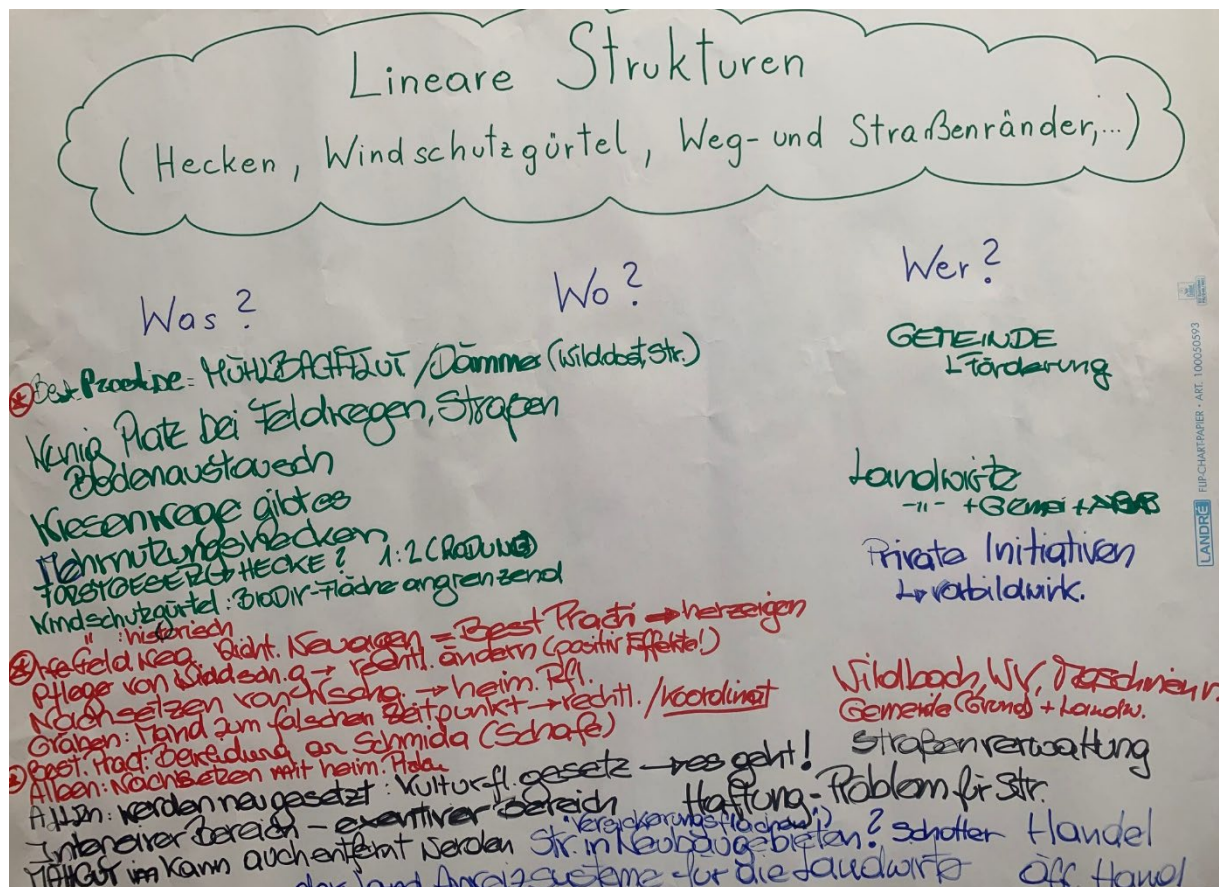 Lineare Strukturen
(Hecken, Windschutzgürtel, Weg- und Straßenränder,...)
Was?
Wo?
Wer?
Best Practise: MÜHLBACHFLUT / Dämme (Wildobst, Str.)
Wenig Platz bei Feldwegen, Straßen
Bodenaustausch
Wiesenwege gibt es
Mehrnutzungshecken
FORSTGESETZ HECKE? 1:2 (RODUNG)
Windschutzgürtel: BIODIV-Fläche angrenzend
" : historisch
Feldweg Richt. = Best Practi → herzeigen
Pflege von → rechtl. ändern (positiv Effekte!)
Nachsetzen von → heim. Pfl.
Gräben: zum falschen Zeitpunkt → rechtl. / Koordinat
Best. Pract: Beweidung an Schmida (Schafe)
Alleen: Nachsetzen mit heim.
Alleen: werden neu gesetzt: Kulturfl. gesetz → es geht!
Intensiver Bereich - extensiver Bereich
MÄHGUT kann auch entfernt werden
Str. in Neubaugebieten? Schotter
Versickerungsflächen
Anreizsysteme für die Landwirte
GEMEINDE
Förderung
Landwirte
-"- + Gemei +
Private Initiativen
↳ Vorbildwirk.
Wildbach, WV,
Gemeinde (Grund) + Landw.
Straßenverwaltung
Haftung - Problem für Str.
Handel
öff Hand
LANDRÉ FLIP-CHART-PAPIER • ART. 100050593